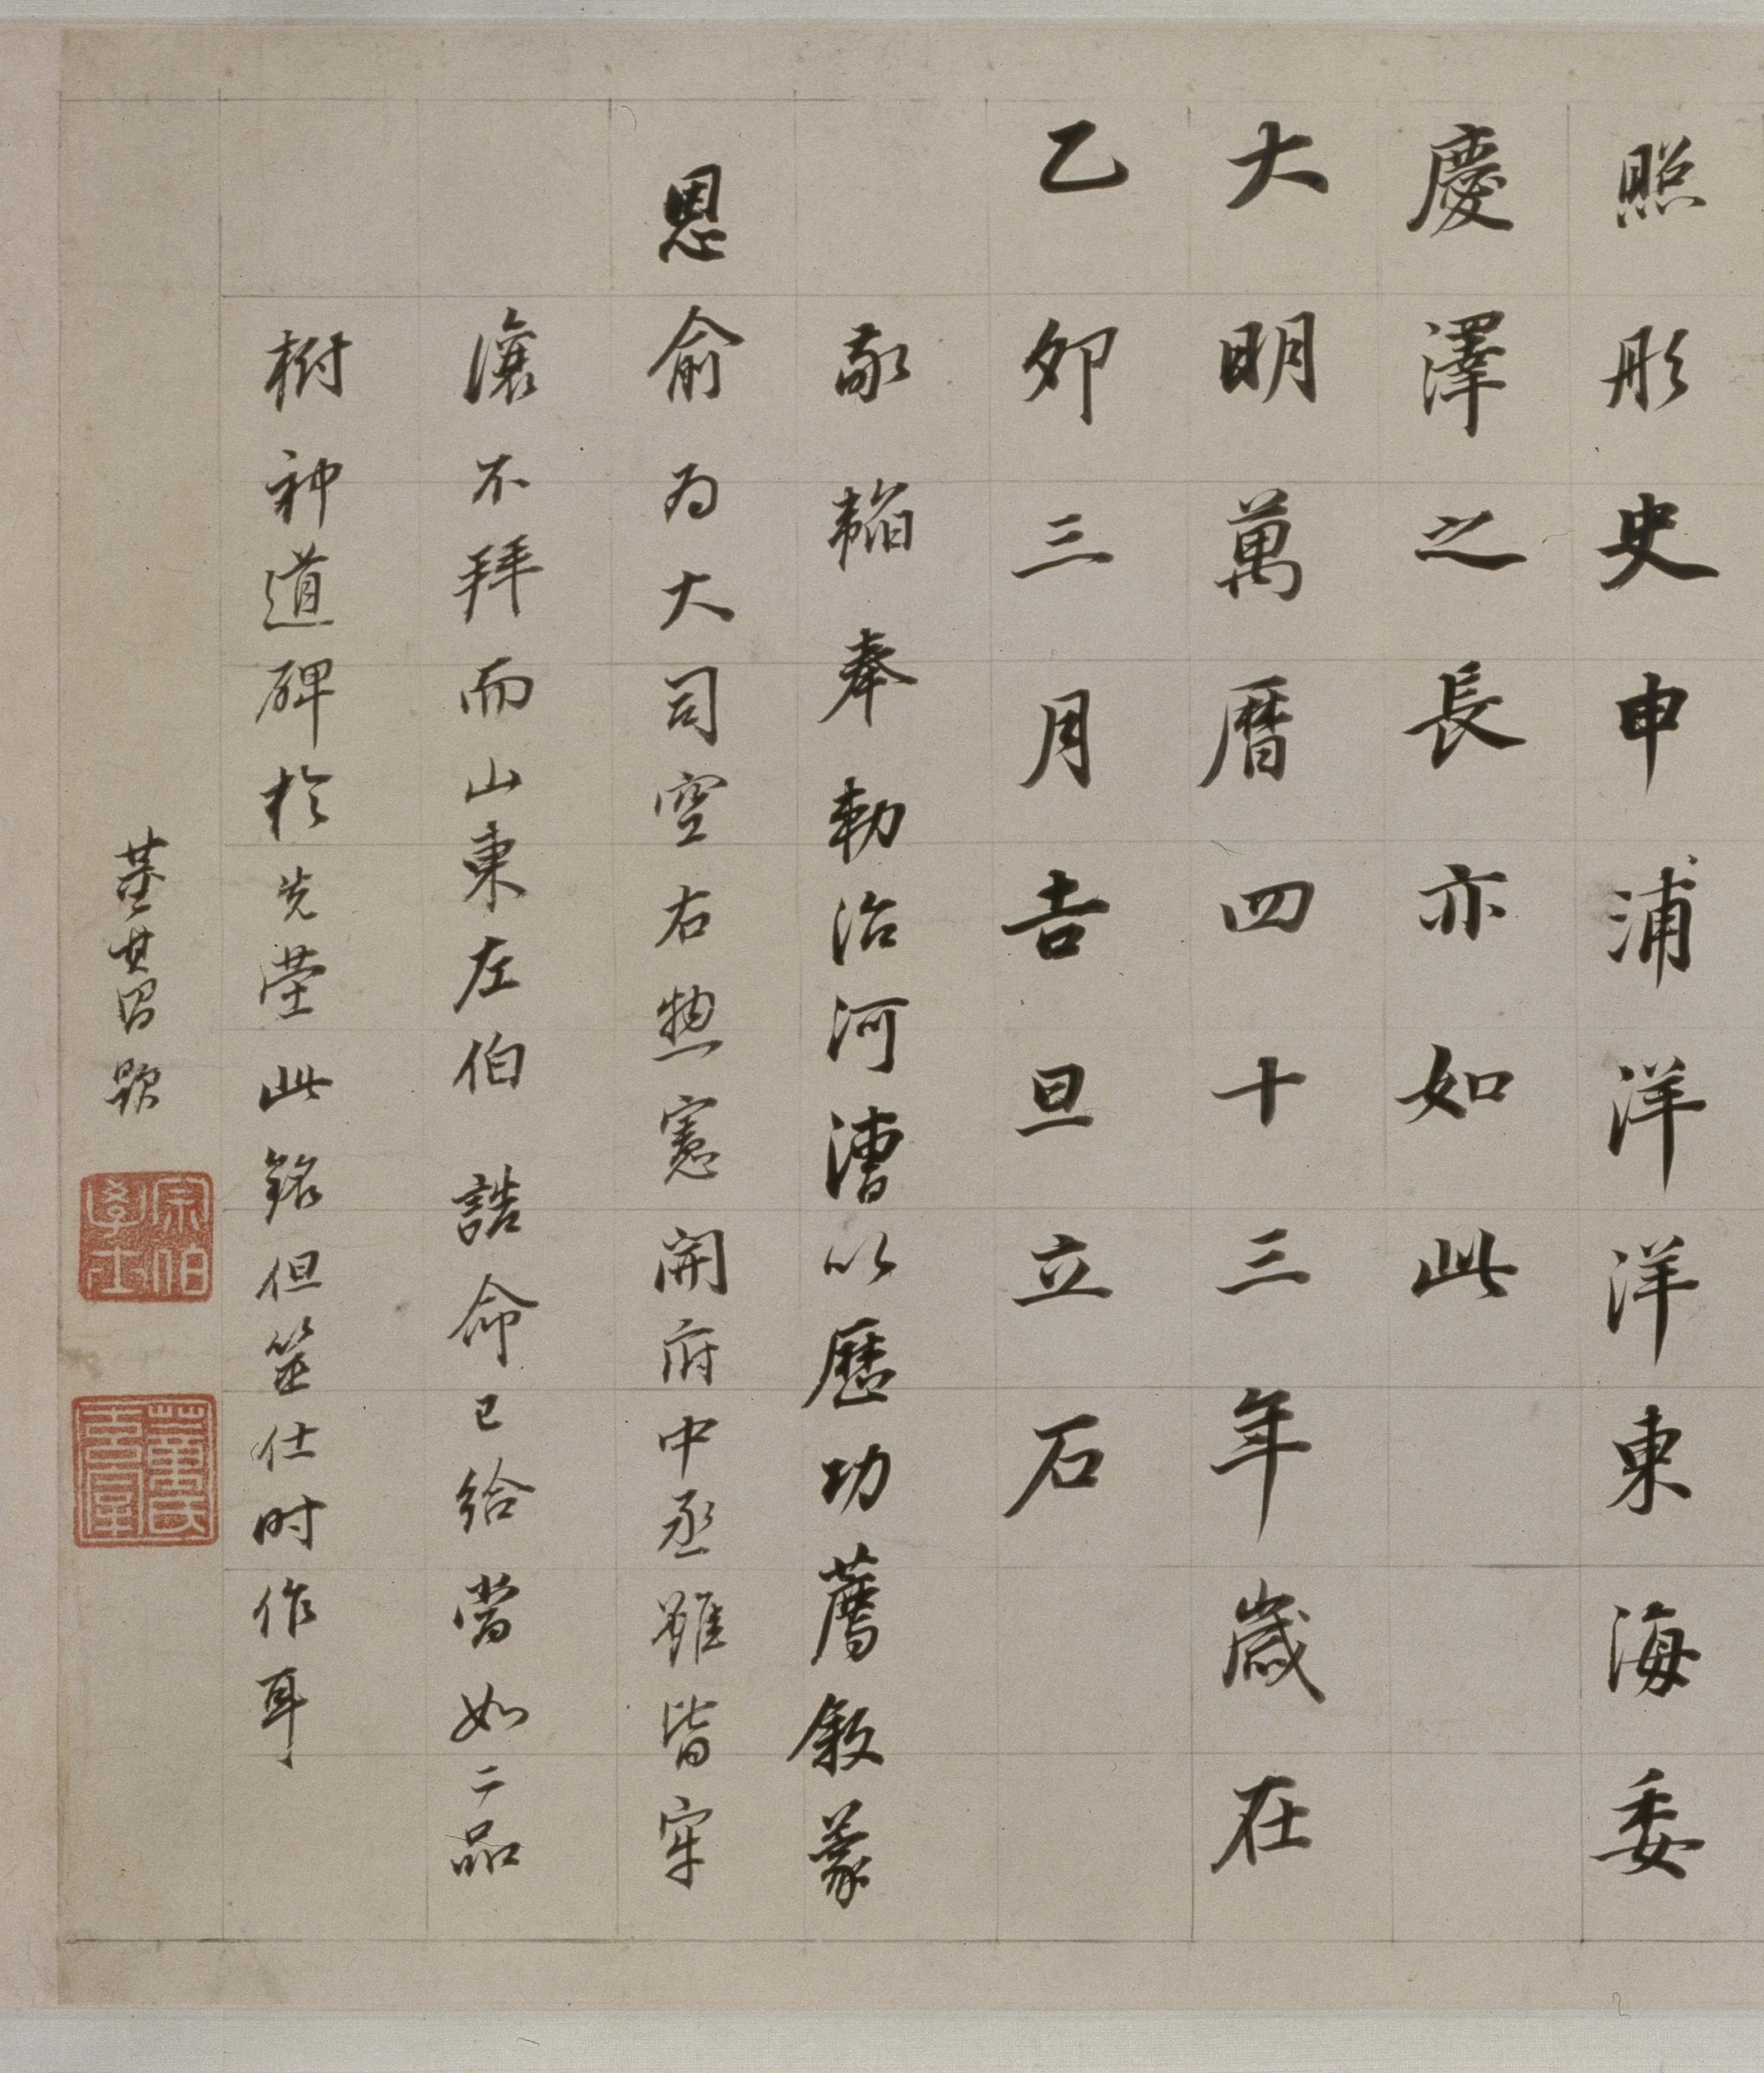 照彤史申浦洋洋東海委
慶澤之長亦如此
大明萬曆四十三年歲在
乙卯三月吉旦立石
敬韜奉勅治河漕以歷功薦敘蒙
恩俞為大司空右總憲開府中丞雖皆牢
讓不拜而山東左伯誥命已給當如二品
樹神道碑於先塋此銘但筮仕時作耳
董其昌題
宗伯學士
董氏玄宰